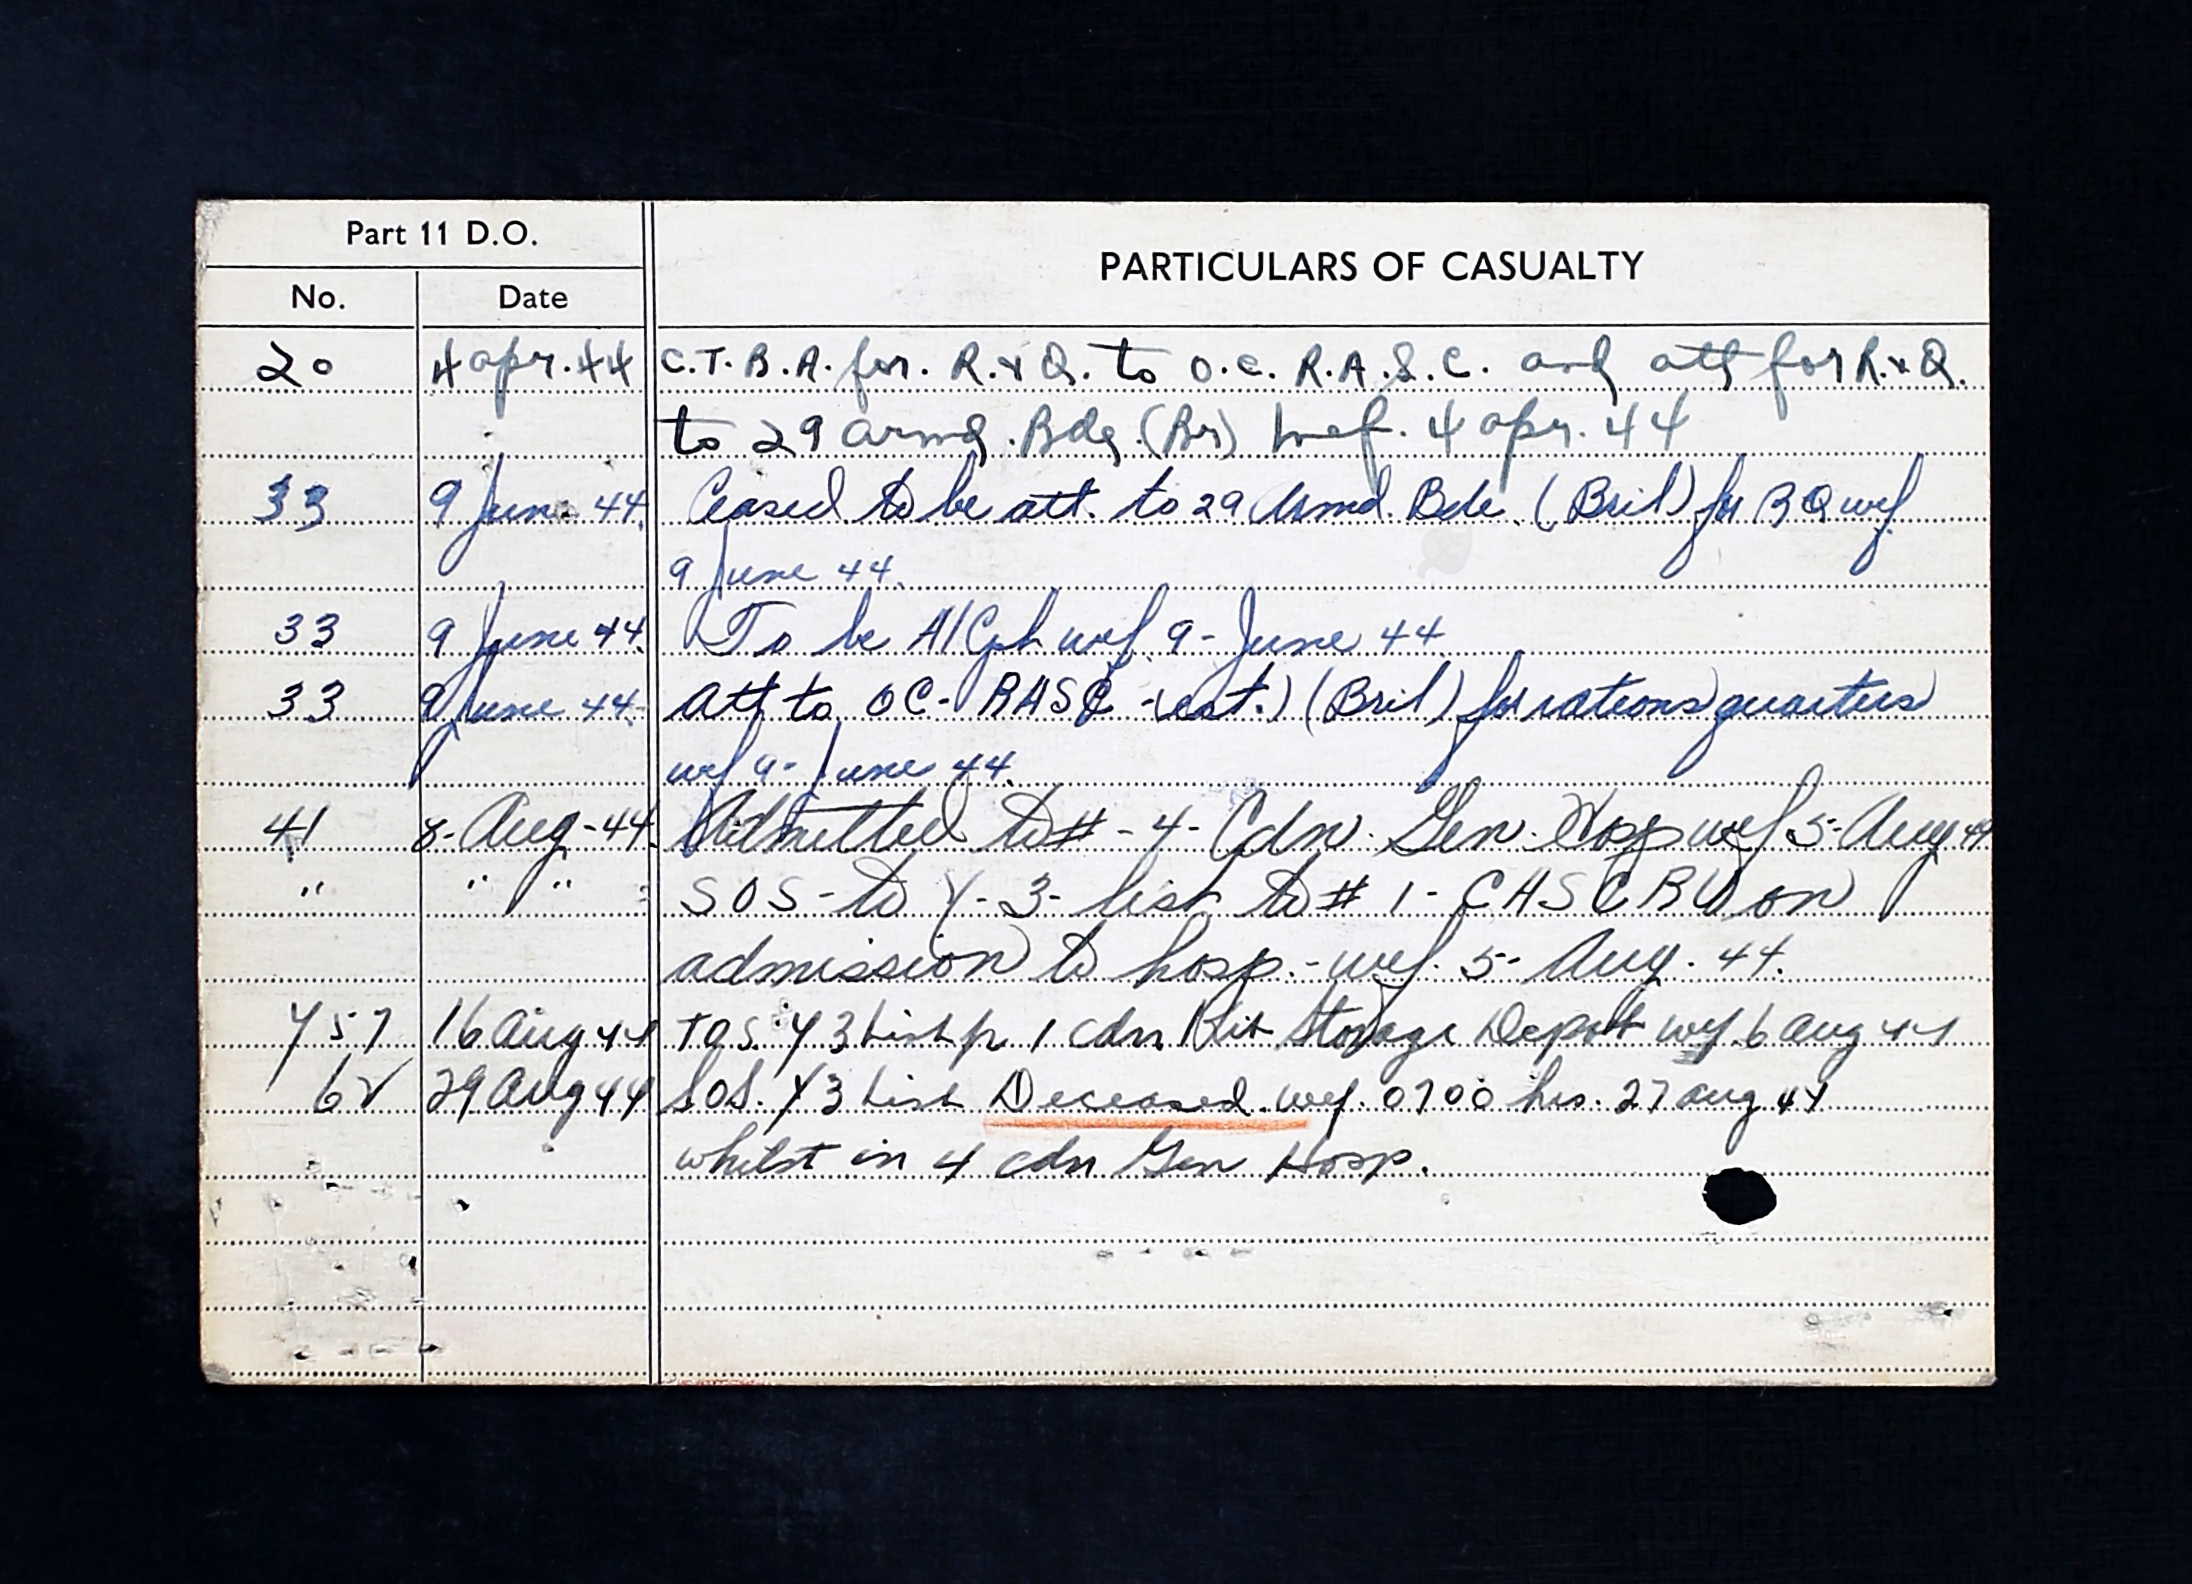 Part 11 D.O.
PARTICULARS OF CASUALTY
No. Date
20 4 apr. 44 C.T.B.A. for. R.&Q. to O.C. R.A.S.C. and att for R.&Q.
to 29 armd. Bde. (Br) wef. 4 apr. 44
33 9 June 44. Ceased to be att. to 29 Armd. Bde. (Brit) for R Q wef
9 June 44.
33 9 June 44. To be A/Cpl wef. 9 - June 44
33 9 June 44. att to OC - RASC - (Brit) for rations quarters
wef 9 - June 44.
41 8 - Aug - 44. Admitted to # - 4 - Cdn. Gen. Hosp wef 5 - Aug 44
" " " SOS - to Y - 3 - list to # 1 - CASCRU on
admission to hosp. - wef. 5 - Aug. 44.
Y57 16 Aug 44 TOS. Y3 List fr 1 Cdn Kit Storage Depot wef 6 Aug 44
62 29 Aug 44 SOS. Y3 List Deceased. wef. 0700 hrs. 27 aug 44
whilst in 4 Cdn Gen Hosp.